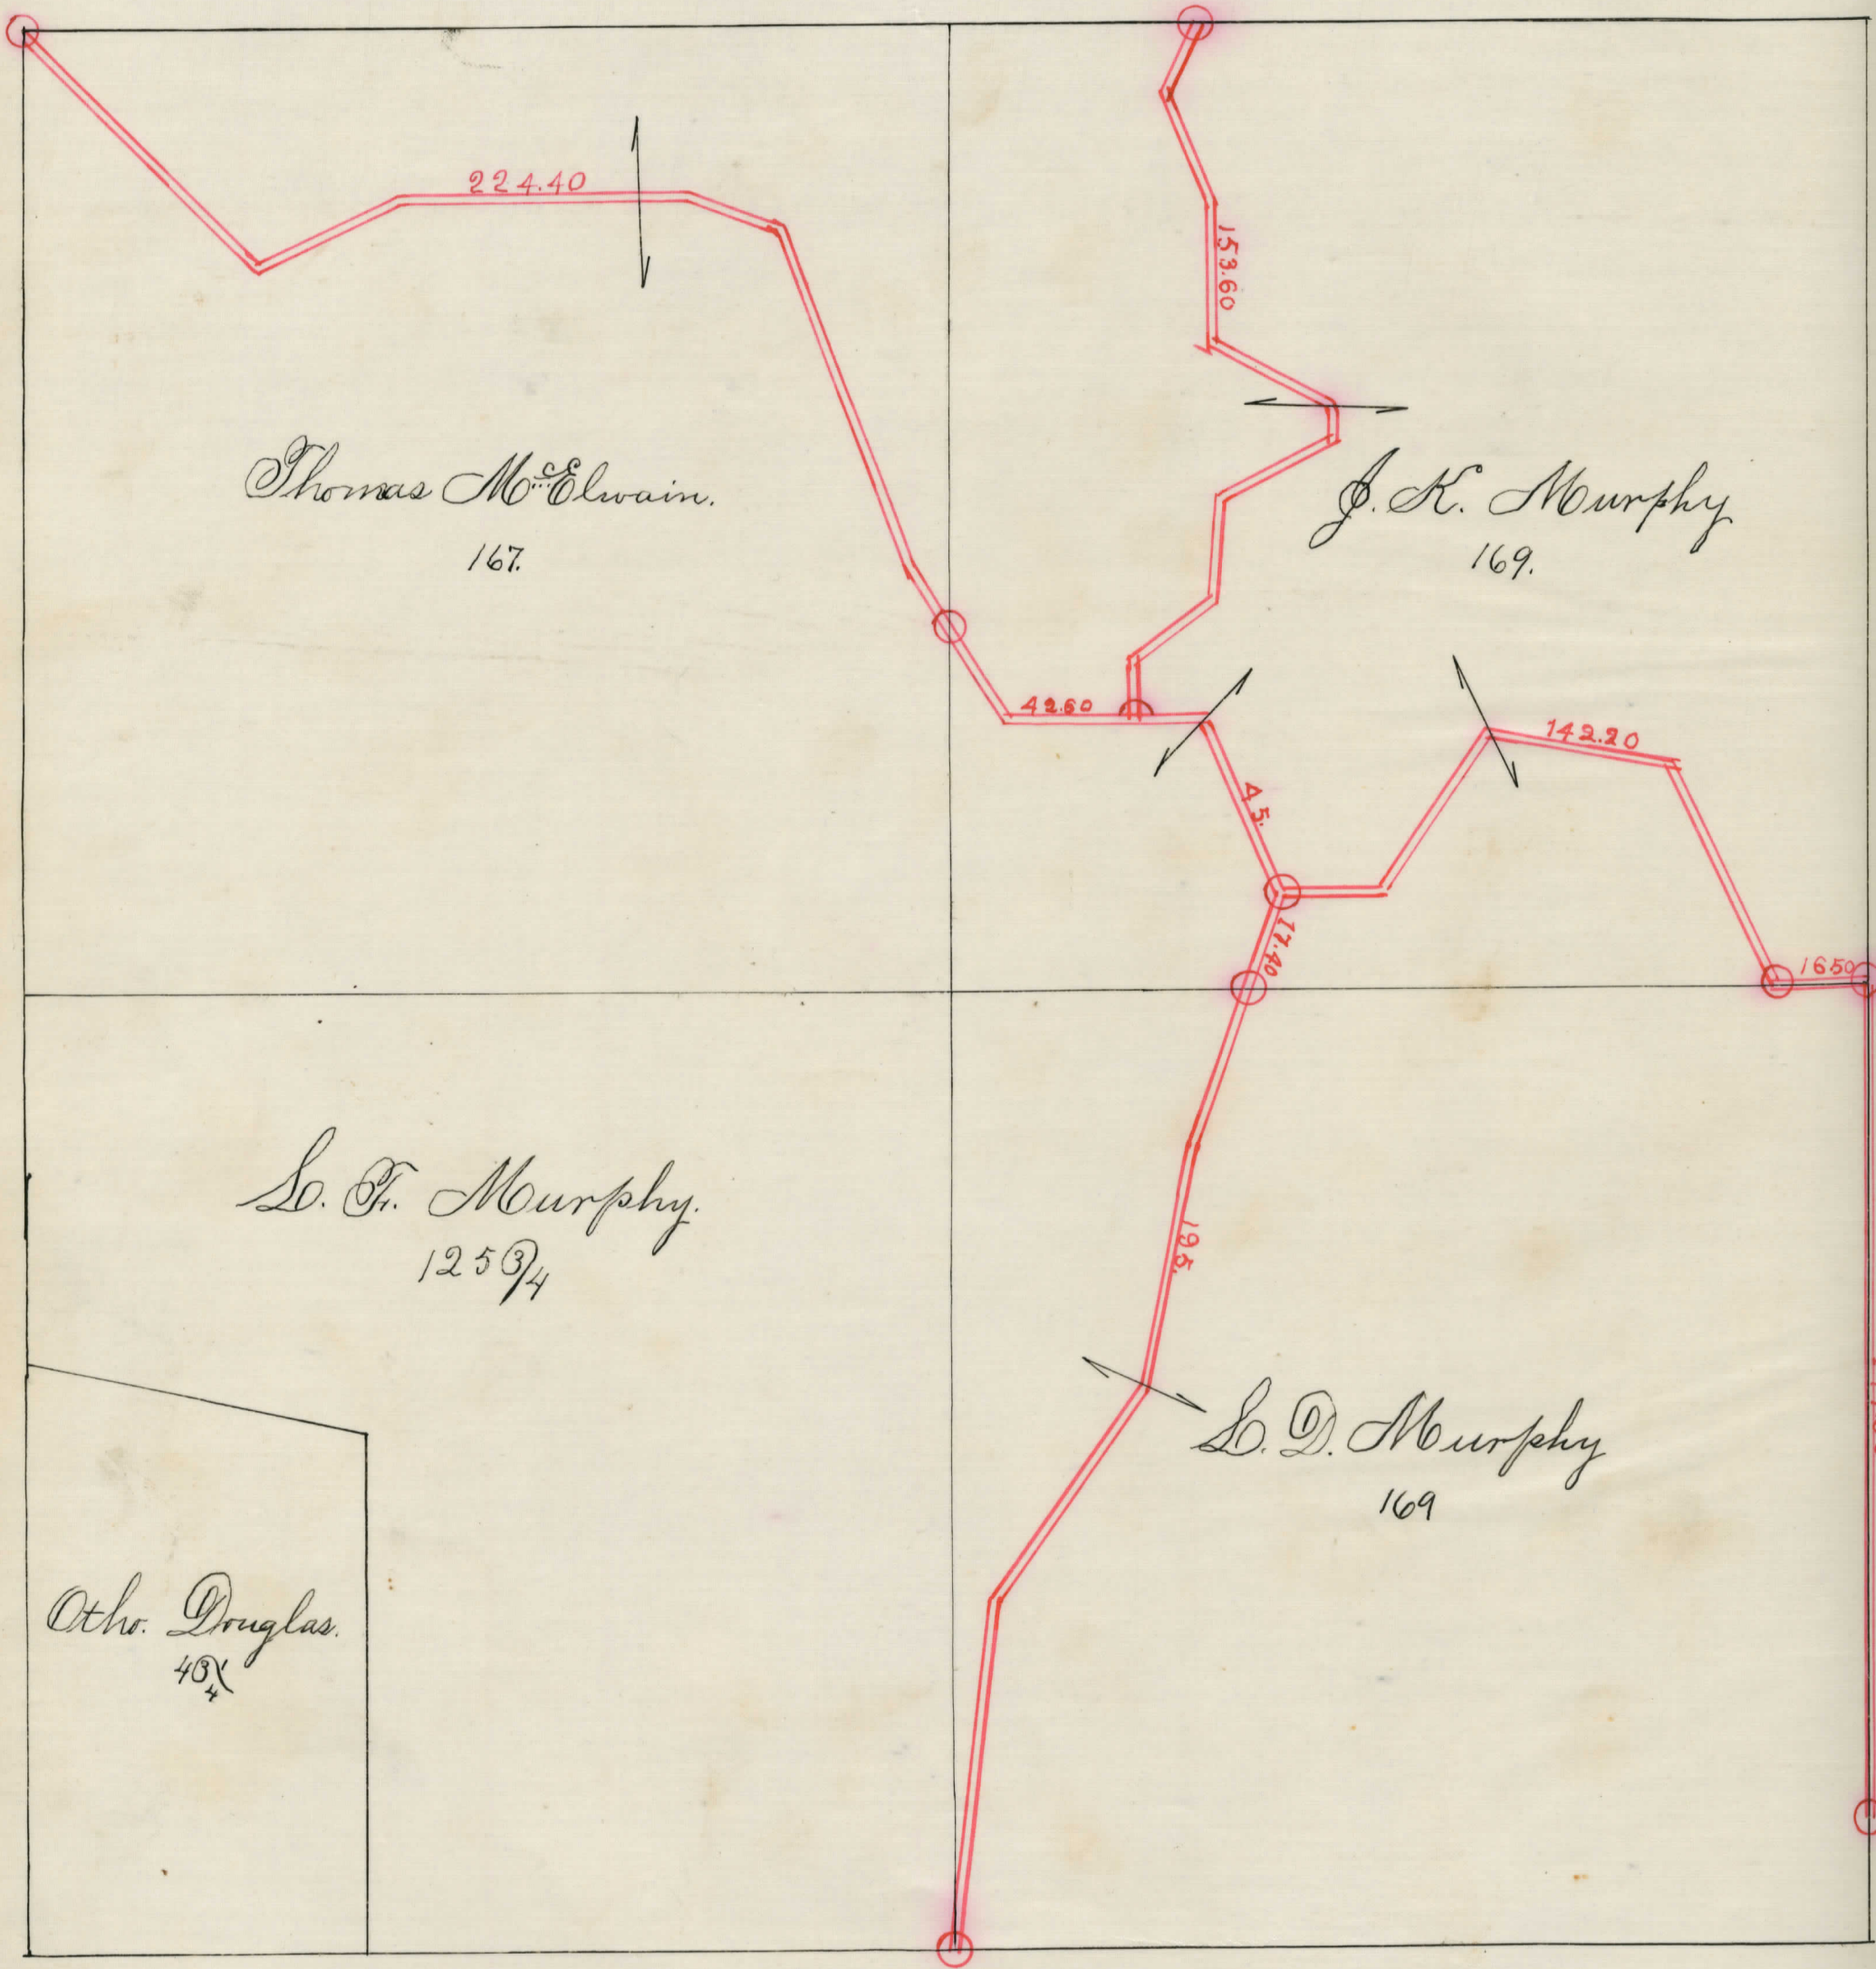 224.40
153.60
Thomas McElwain.
167.
J. K. Murphy
169.
42.60
142.20
45.
17.40
1650
L. F. Murphy.
125 3/4
195.
L. D. Murphy
169
Otho. Douglas.